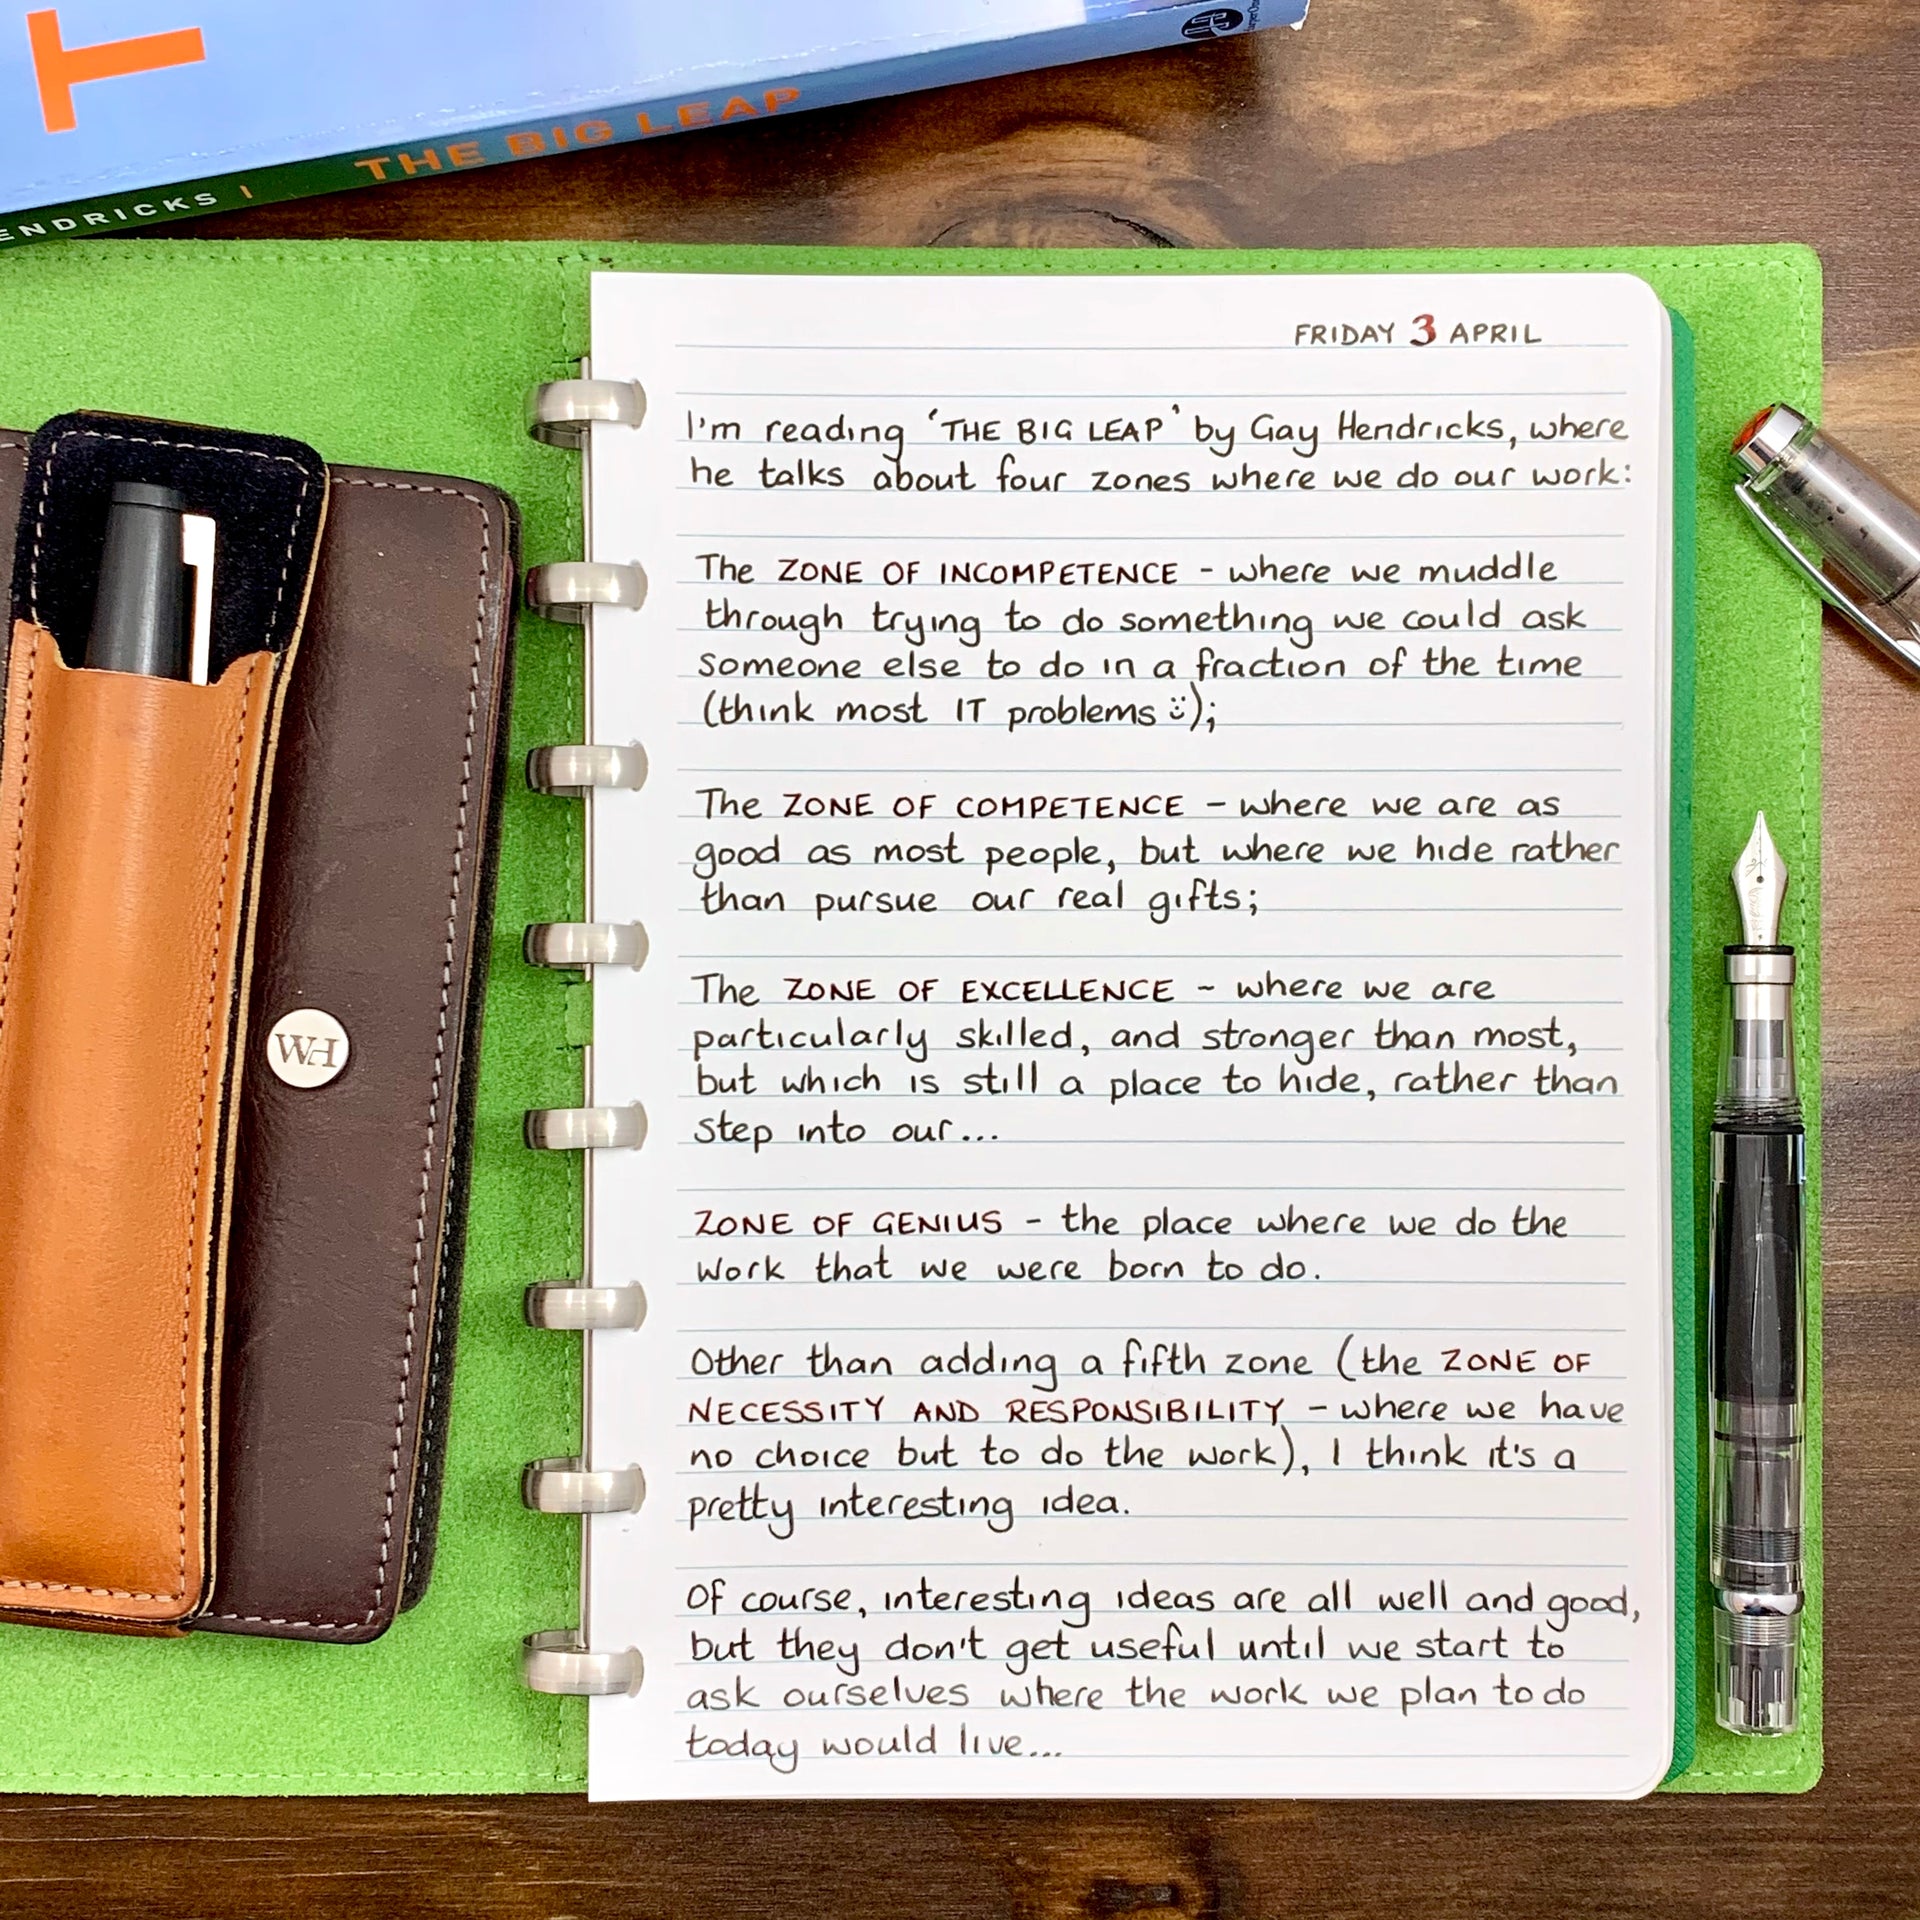 T
THE BIG LEAP
ENDRICKS |
FRIDAY 3 APRIL
I'm reading 'THE BIG LEAP' by Gay Hendricks, where
he talks about four zones where we do our work:
The ZONE OF INCOMPETENCE - where we muddle
through trying to do something we could ask
someone else to do in a fraction of the time
(think most IT problems ü);
The ZONE OF COMPETENCE - where we are as
good as most people, but where we hide rather
than pursue our real gifts;
The ZONE OF EXCELLENCE - where we are
particularly skilled, and stronger than most,
but which is still a place to hide, rather than
step into our...
ZONE OF GENIUS - the place where we do the
work that we were born to do.
Other than adding a fifth zone (the ZONE OF
NECESSITY AND RESPONSIBILITY - where we have
no choice but to do the work), I think it's a
pretty interesting idea.
Of course, interesting ideas are all well and good,
but they don't get useful until we start to
ask ourselves where the work we plan to do
today would live...
WH